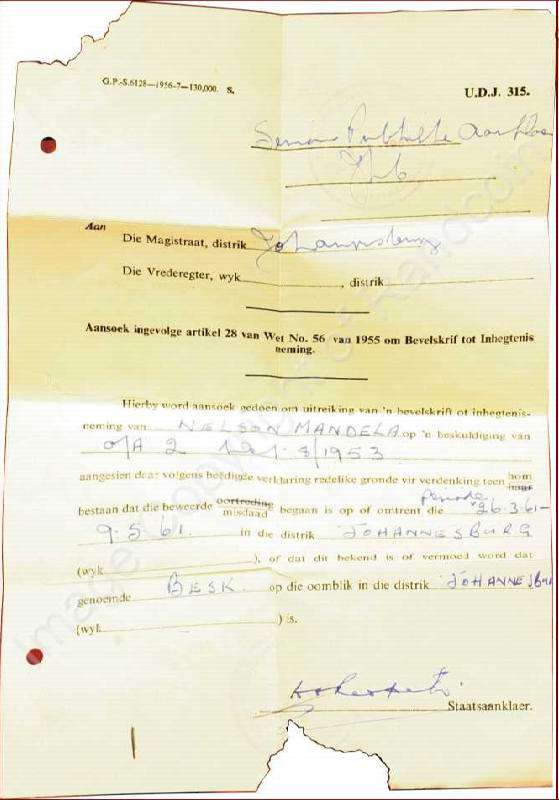 G.P.-S.6128—1956-7—130,000. S.
U.D.J. 315.
Senior Publieke
Jhb
Aan
Die Magistraat, distrik Johannesburg
Die Vrederegter, wyk , distrik
Aansoek ingevolge artikel 28 van Wet No. 56 van 1955 om Bevelskrif tot Inhegtenis
neming.
Hierby word aansoek gedoen om uitreiking van 'n bevelskrif tot inhegtenis-
neming van NELSON MANDELA op 'n beskuldiging van
O/A 2 Wet 8/1953
aangesien daar volgens beëdigde verklaring redelike gronde vir verdenking teen hom
haar
bestaan dat die beweerde oortreding misdaad begaan is op of omtrent die periode 26.3.61—
9.5.61. in die distrik JOHANNESBURG
(wyk ), of dat dit bekend is of vermoed word dat
genoemde BESK. op die oomblik in die distrik JOHANNESBU
(wyk ) is.
Staatsaanklaer.